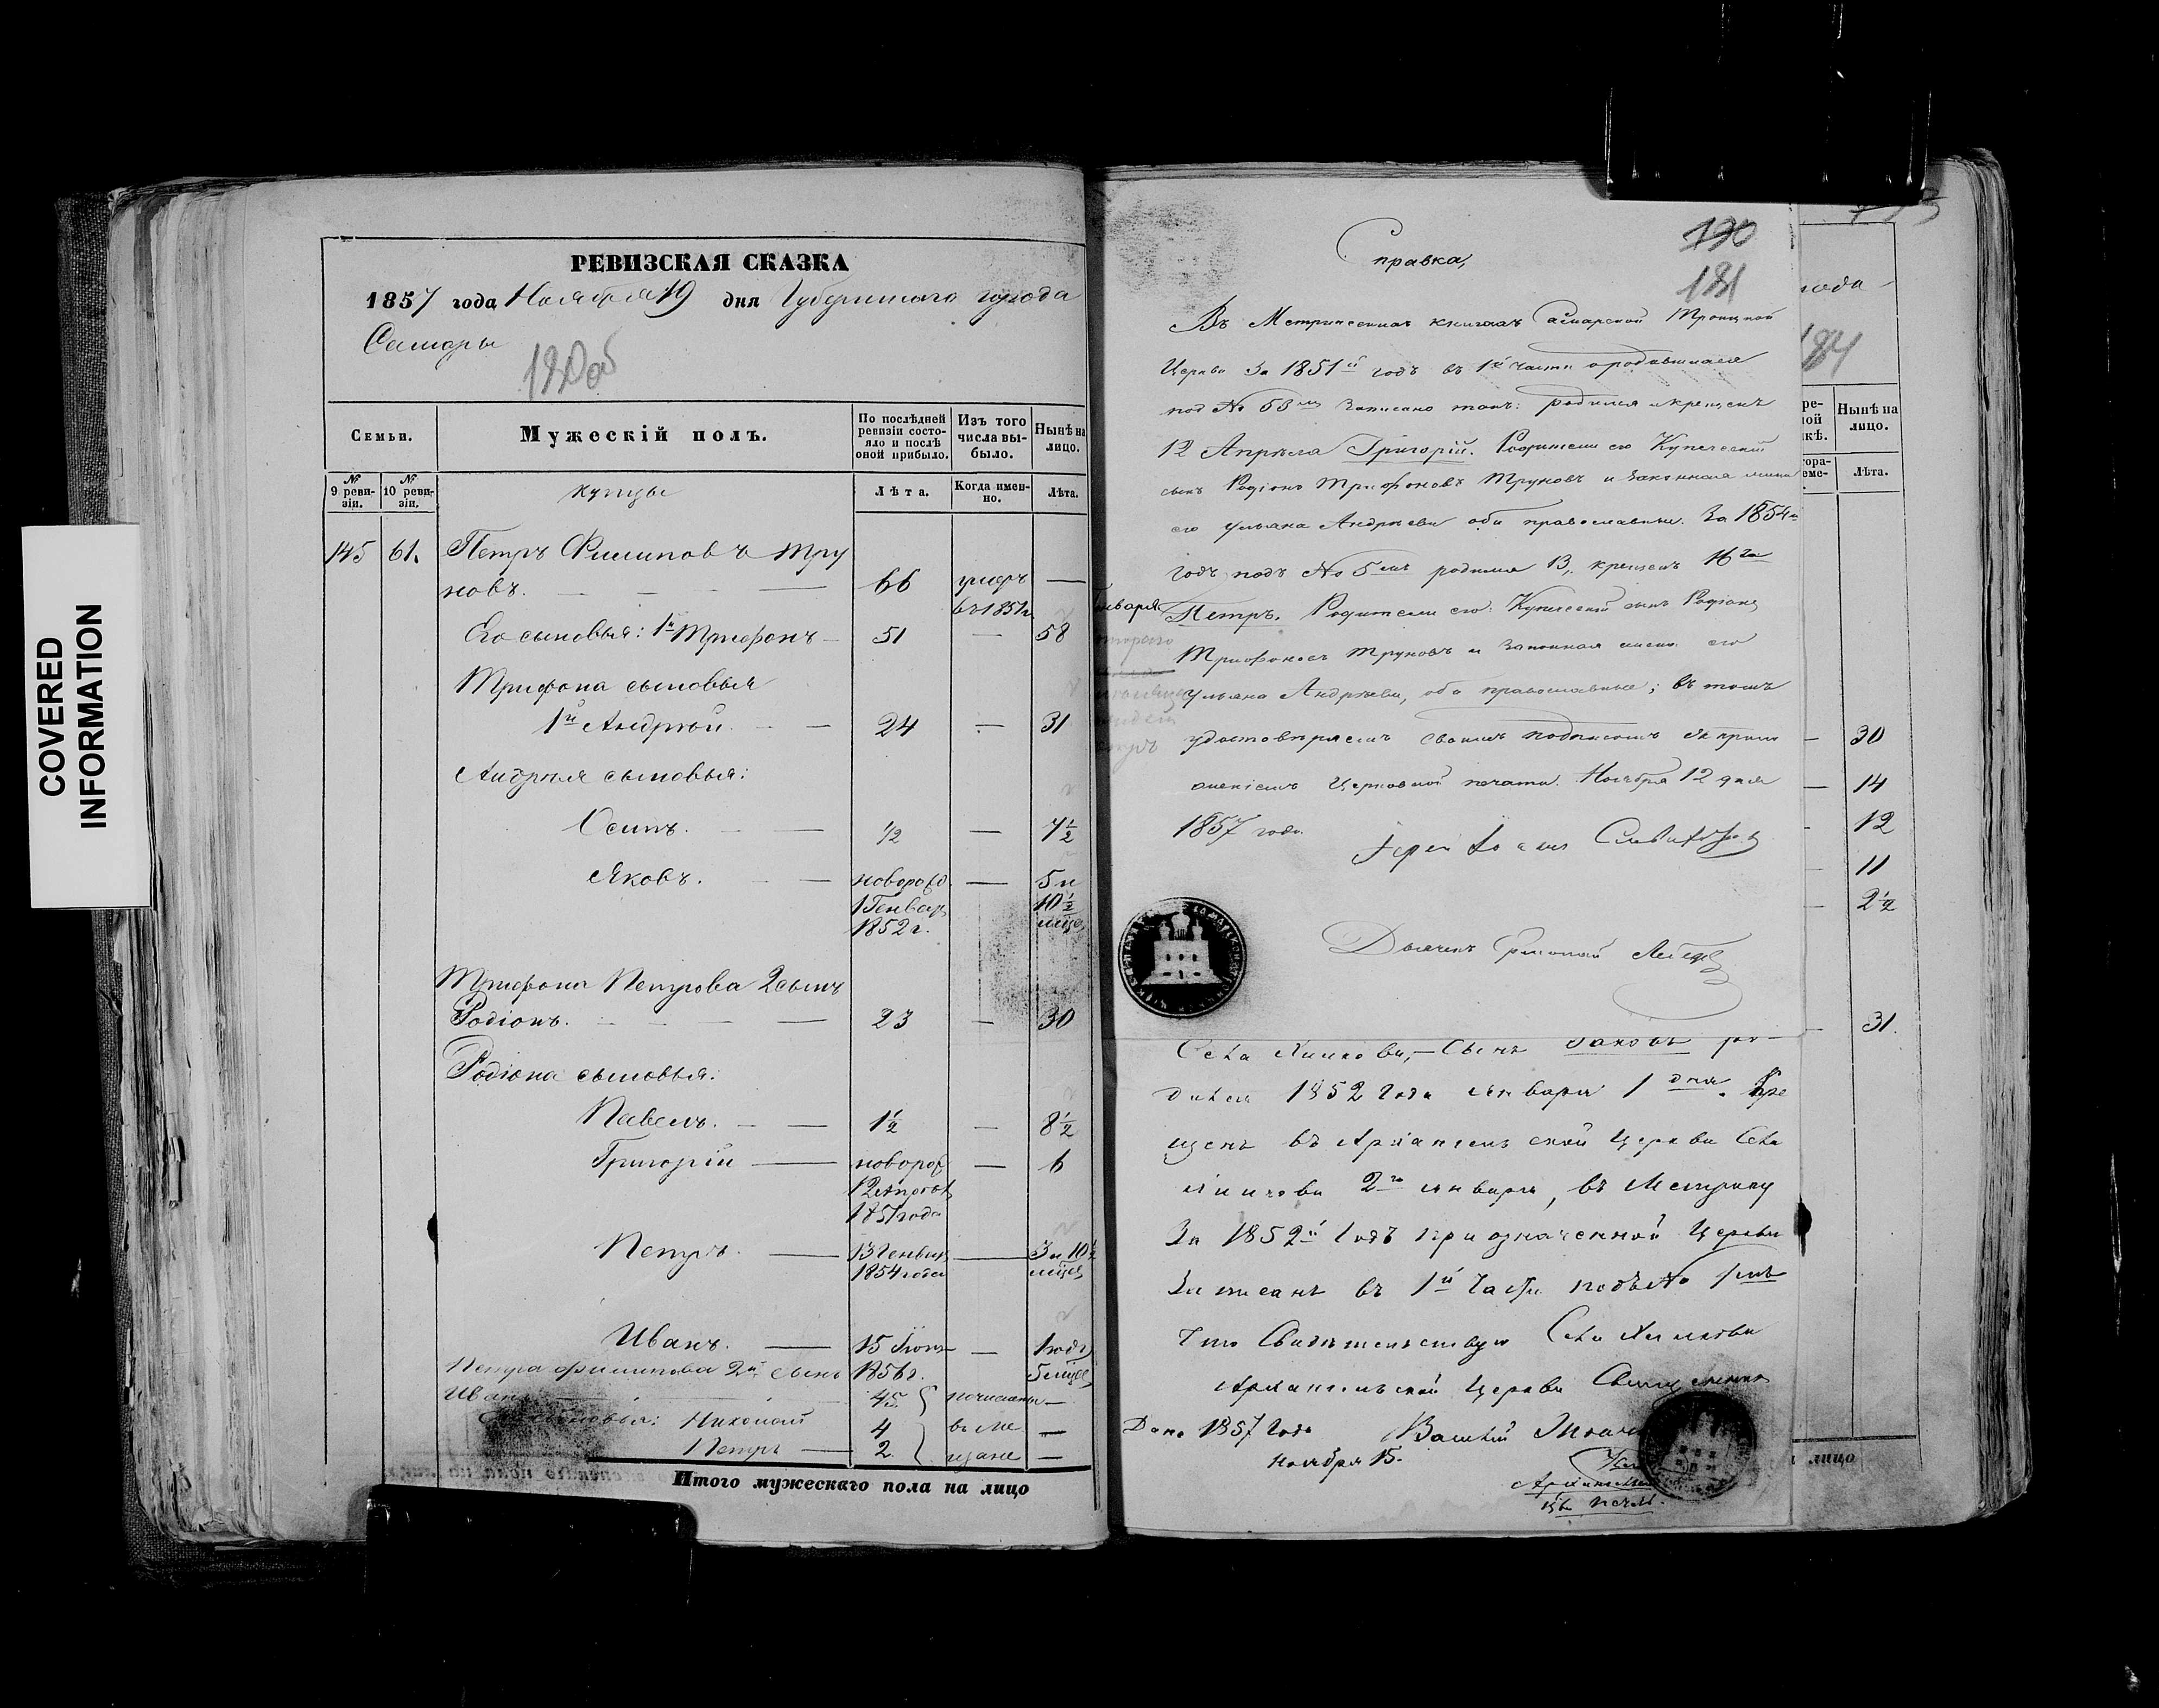 COVERED
INFORMATION
РЕВИЗСКАЯ СКАЗКА
1857 года Ноября 19 дня Губернского города
Самары
180об
Семьи.
Мужескій полъ.
По послѣдней ревизіи состояло и послѣ оной прибыло.
Изъ того числа выбыло.
Нынѣ на лицо.
№ 9 ревизіи.
№ 10 ревизіи.
купцы
Лѣта.
Когда именно.
Лѣта.
145 61. Петръ Филиповъ Тру
новъ. 66 умеръ —
въ 1851г.
Его сыновья: 1й Трифонъ 51 — 58
Трифона сыновья
1й Андрей. 24 — 31
Андрея сыновья:
Осипъ. 1/2 — 7 1/2
Яковъ. новорожд. — 5 и
1 Генвар. 10 1/2
1852 г. мцов
Трифона Петрова 2 сынъ
Родіонъ. 23 — 30
Родіона сыновья:
Павелъ. 1 1/2 — 8 1/2
Григорій новорож — 6
12 Апрѣля
1851 года
Петръ. 13 Генвар — 3 и 10 1/2
1854 года мцов
Иванъ. 15 Іюня — 1 годъ
Петра Филипова 2й сынъ 1856г. 5 мцов
Иванъ 45 почислены —
сыновья: Николай 4 въ ме —
Петръ 2 щане —
Итого мужескаго пола на лицо
Справка,
130
181
Въ Метрическихъ книгахъ Самарской Троицкой
Церкви за 1851й годъ въ 1й части о родившихся
под № 53мъ записано такъ: родился и крещенъ
12 Апрѣля Григорій. Родители его Купеческій
сынъ Родіонъ Трифоновъ Труновъ и законная жена
его Ульяна Андрѣева оба православные. За 1854й
годъ подъ № 5мъ родился 13, крещенъ 16го
января Петръ. Родители его: Купеческій сынъ Родіонъ
Трифоновъ Труновъ и законная жена его
Ульяна Андрѣева, оба православные; въ томъ
удостовѣряемъ своимъ подписомъ съ прило
женіемъ Церковной печати. Ноября 12 дня
1857 года.
Іерей Іоаннъ
Дьячекъ
Села — Сынъ Яковъ ро-
дился 1852 года января 1 дня. Кре
щенъ въ Архангельской Церкви Села
2го января, въ Метрику
За 1852й годъ при означенной Церкви
Записанъ въ 1й части подъ № 1мъ
Что Свидѣтельствую Села
Архангельской Церкви Священникъ
Дано 1857 года Василій
Ноября 15.
года
184
Нынѣ на лицо.
Лѣта.
30
14
12
11
2 1/2
31.
лицо